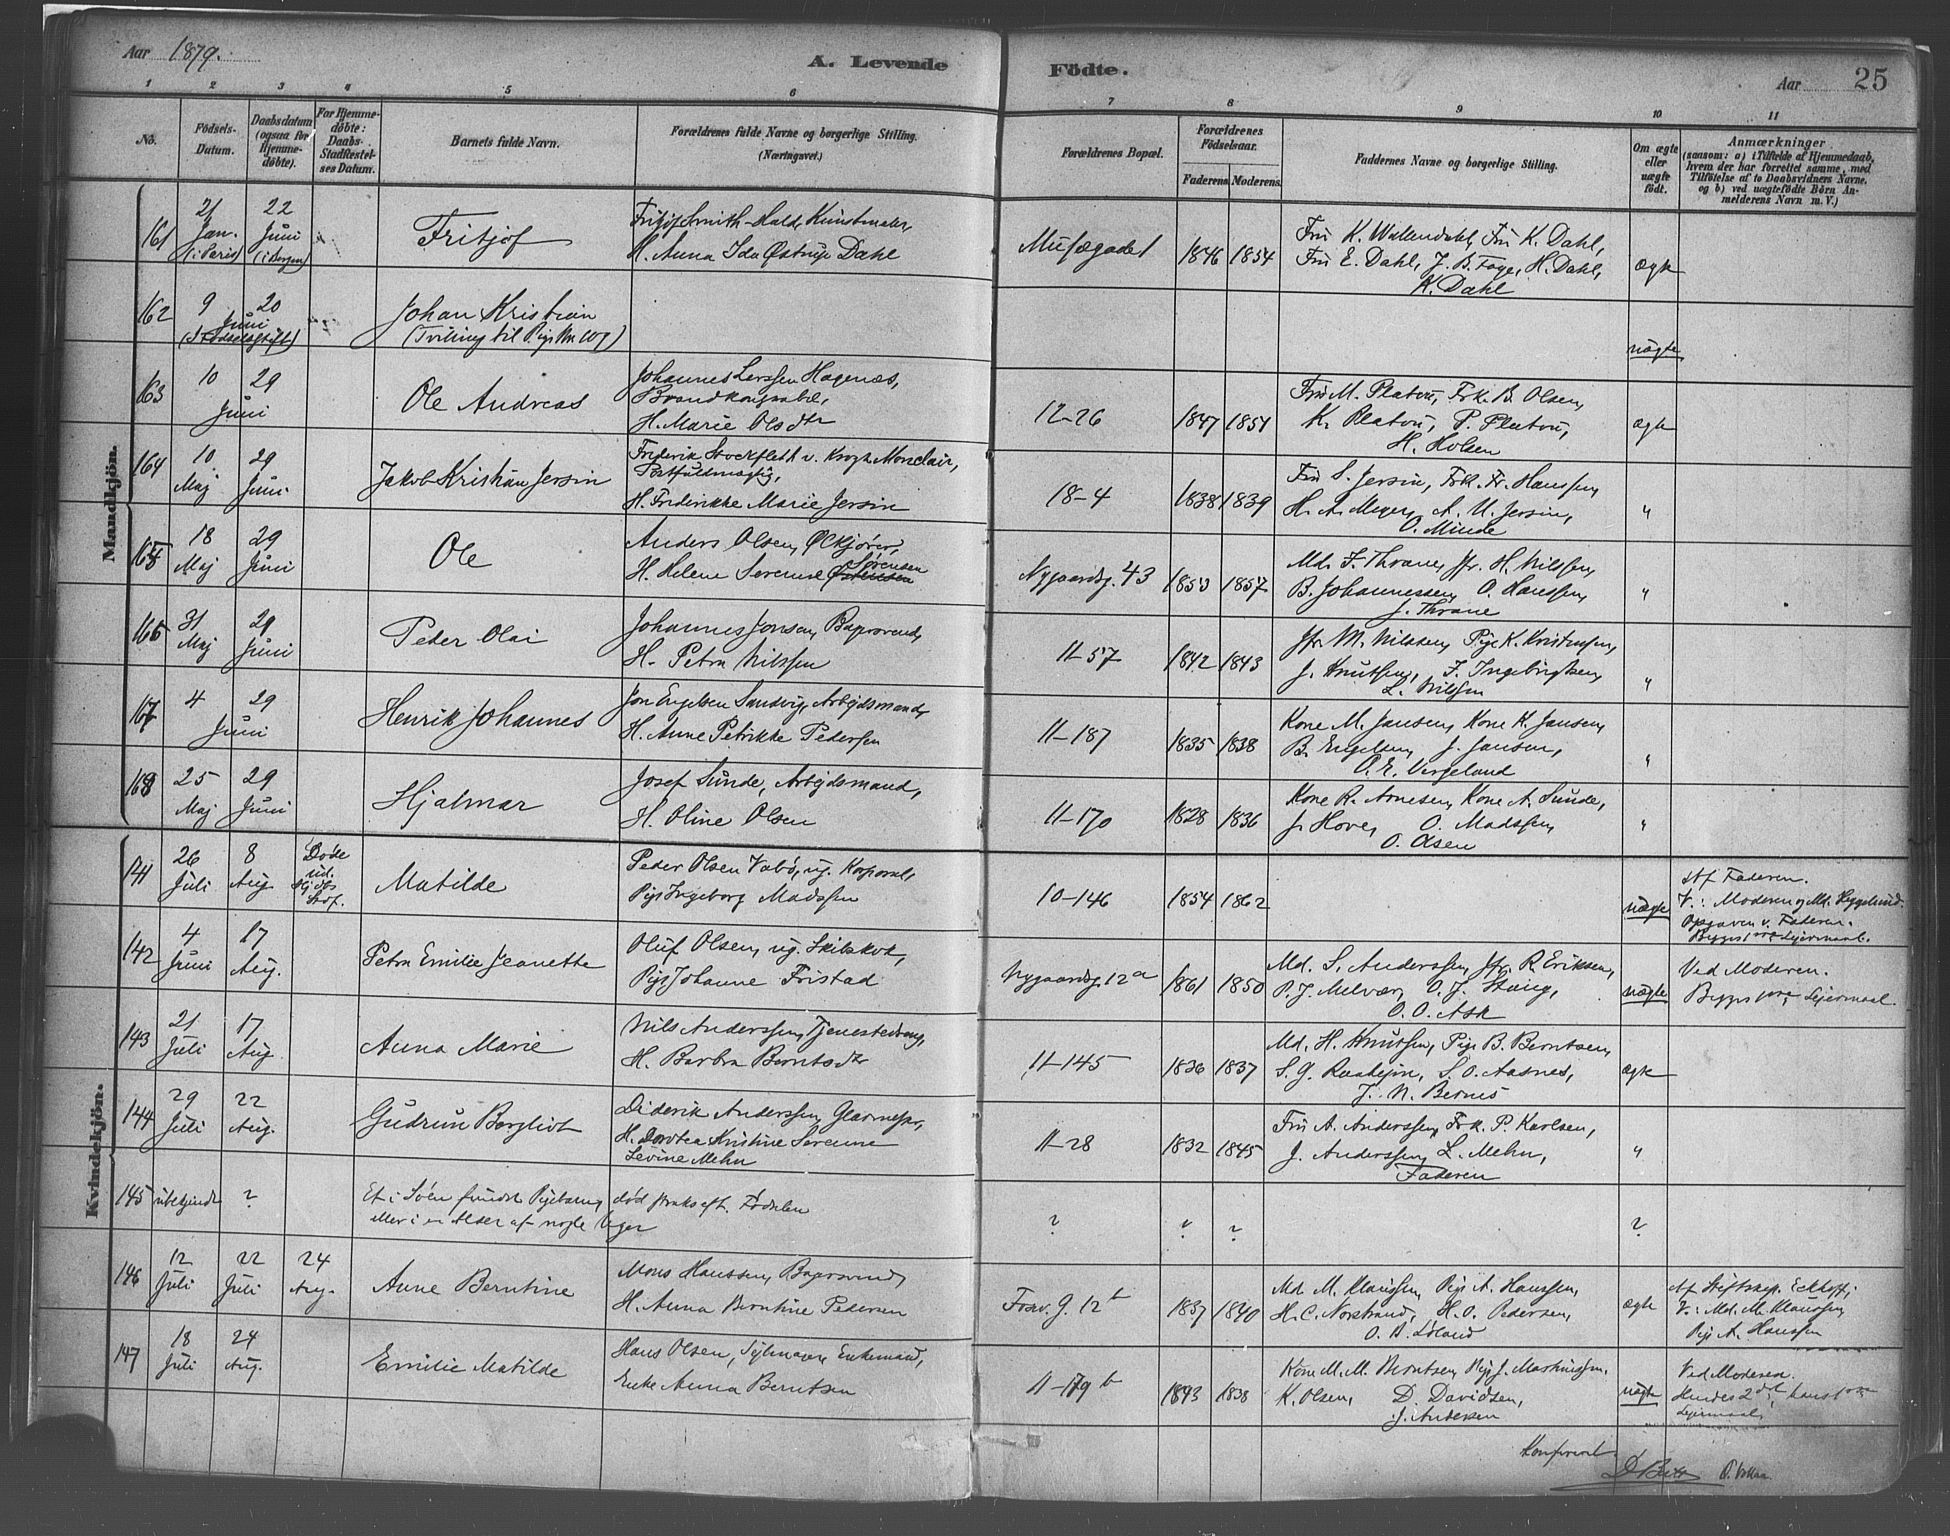 Aar 1879.
A. Levende Födte.
Aar 25
1 2 3 4 5 6 7 8 9 10 11
No.
Födsels-Datum.
Daabsdatum (ogsaa for Hjemmedöbte).
For Hjemmedöbte: Daabs-Stadfæstelses Datum.
Barnets fulde Navn.
Forældrenes fulde Navne og borgerlige Stilling. (Næringsvei.)
Forældrenes Bopæl.
Forældrenes Födselsaar.
Faderens Moderens
Faddernes Navne og borgerlige Stilling.
Om ægte eller uægte födt.
Anmærkninger
(saasom: a) i Tilfælde af Hjemmedaab, hvem der har forrettet samme, med Tilföielse af to Daabsvidners Navne, og b) ved uægtefödte Börn Anmelderens Navn m. V.)
Mandkjön.
161 21 Jan. (i Paris) 22 Juni (i Bergen) Fritjof
Fritjof Smith-Hald, Kunstmaler,
H. Anna Ida Østrup Dahl
Musægade 1 1846 1854
Fru K. Wallendahl, Fru K. Dahl,
Fru E. Dahl, J. B. Faye, H. Dahl,
K. Dahl
ægte
162 9 20 Juni
Johan Kristian
(Tvilling til Pige No 107)
uægte
163 10 29 Juni Ole Andreas
Johannes Larssen Hagenæs,
Brandkonstabel,
H. Marie Olsdtr
12-26 1847 1851
Fru M. Platou, Frk. B. Olsen,
K. Platou, P. Platou,
H. Holsen
ægte
164 10 Maj 29 Juni Jakob Kristian Jersin
Friderik Stockfleth v. Krogh Monclair,
Postfuldmægtig,
H. Friderikke Marie Jersin
18-4 1838 1839
Fru S. Jersin, Frk. Fr. Hanssen,
H. A. Meyer, A. U. Jersin,
O. Minde
"
165 18 Maj 29 Juni Ole
Anders Olsen, Ølkjører,
H. Helene Serense Sørensen
Nygaardsg. 43 1853 1857
Md. F. Thrane, Jfr. H. Nilssen,
B. Johannessen, O. Hanssen,
J. Thrane
"
166 31 Maj 29 Juni Peder Olai
Johannes Jonsen, Bagersvend,
H. Petra Nilssen
11-57 1842 1843
Jfr. M. Nilssen, Pige K. Kristensen,
J. Knutssen, F. Ingebrigtsen,
L. Nilssen
"
167 4 29 Juni Henrik Johannes
Jon Engelsen Sandvig, Arbejdsmand,
H. Anne Petrikke Pederssen
11-187 1835 1838
Kone M. Jansen, Kone K. Jansen,
B. Engelsen, J. Jansen,
O. E. Vergeland
"
168 25 Maj 29 Juni Hjalmar
Josef Sunde, Arbejdsmand,
H. Oline Olsen
11-170 1828 1836
Kone R. Arnesen, Kone A. Sunde,
J. Hove, O. Madssen,
O. Olsen
"
Kvindekjön.
141 26 Juli 8 Aug. Døde ud. Hj. dbs Stdf.
Matilde
Peder Olsen Vabø, ug. Korporal,
Pige Ingeborg Madssen
10-146 1854 1862
uægte
Af Faderen.
V.: Moderen og Md. Heggelund.
Opgaven v. Faderen.
Begges 1ste Lejermaal.
142 4 Juni 17 Aug. Petra Emilie Jeanette
Oluf Olsen, ug. Skibskok,
Pige Johanne Fristad
Nygaardsg. 12a 1861 1850
Md. S. Anderssen, Jfr. R. Eriksen,
P. J. Melvær, O. J. Haug,
O. O. Ask
uægte
Ved Moderen.
Begges 1ste Lejermaal.
143 21 Juli 17 Aug. Anna Marie
Nils Anderssen, Tjenestedreng,
H. Barbra Berntsdtr
11-145 1836 1837
Md. H. Knutssen, Pige B. Berntsen,
S. O. Aasnes,
ægte
144 29 Juli 22 Aug. Gudrun Bergliot
Diderik Anderssen, Glarmester,
H. Dorotea Kristine Serense
Levine Mehn
11-28 1832 1845
Fru A. Anderssen, Frk. P. Karlsen,
J. Anderssen, L. Mehn,
Faderen
"
145 ubekjendt ? Et i Søen fundet Pigebarn, død straks eft. Fødselen
eller i en Alder af nogle Uger
? ? ? ?
146 12 Juli 22 Juli 24 Aug. Anne Berntine
Mons Hanssen, Bagersvend,
H. Anna Berntine Pedersen
Forv. G. 12b 1837 1840
Md. M. Klaussen, Pige A. Hanssen,
H. C. Norstrand, H. O. Pedersen,
ægte
Af Stiftskap. Eckhoff;
V.: Md. M. Klaussen,
Pige A. Hanssen
147 18 Juli 24 Aug. Emilie Matilde
Hans Olsen, Sejlmager, Enkemand,
Enke Anna Berntsen
11-179b 1843 1838
Kone M. M. Berntsen, Pige J. Martinssen,
K. Olsen, D. Davidsen,
J. Andersen
uægte
Ved Moderen.
Hendes 2det, hans 1ste
Lejermaal.
Konfereret